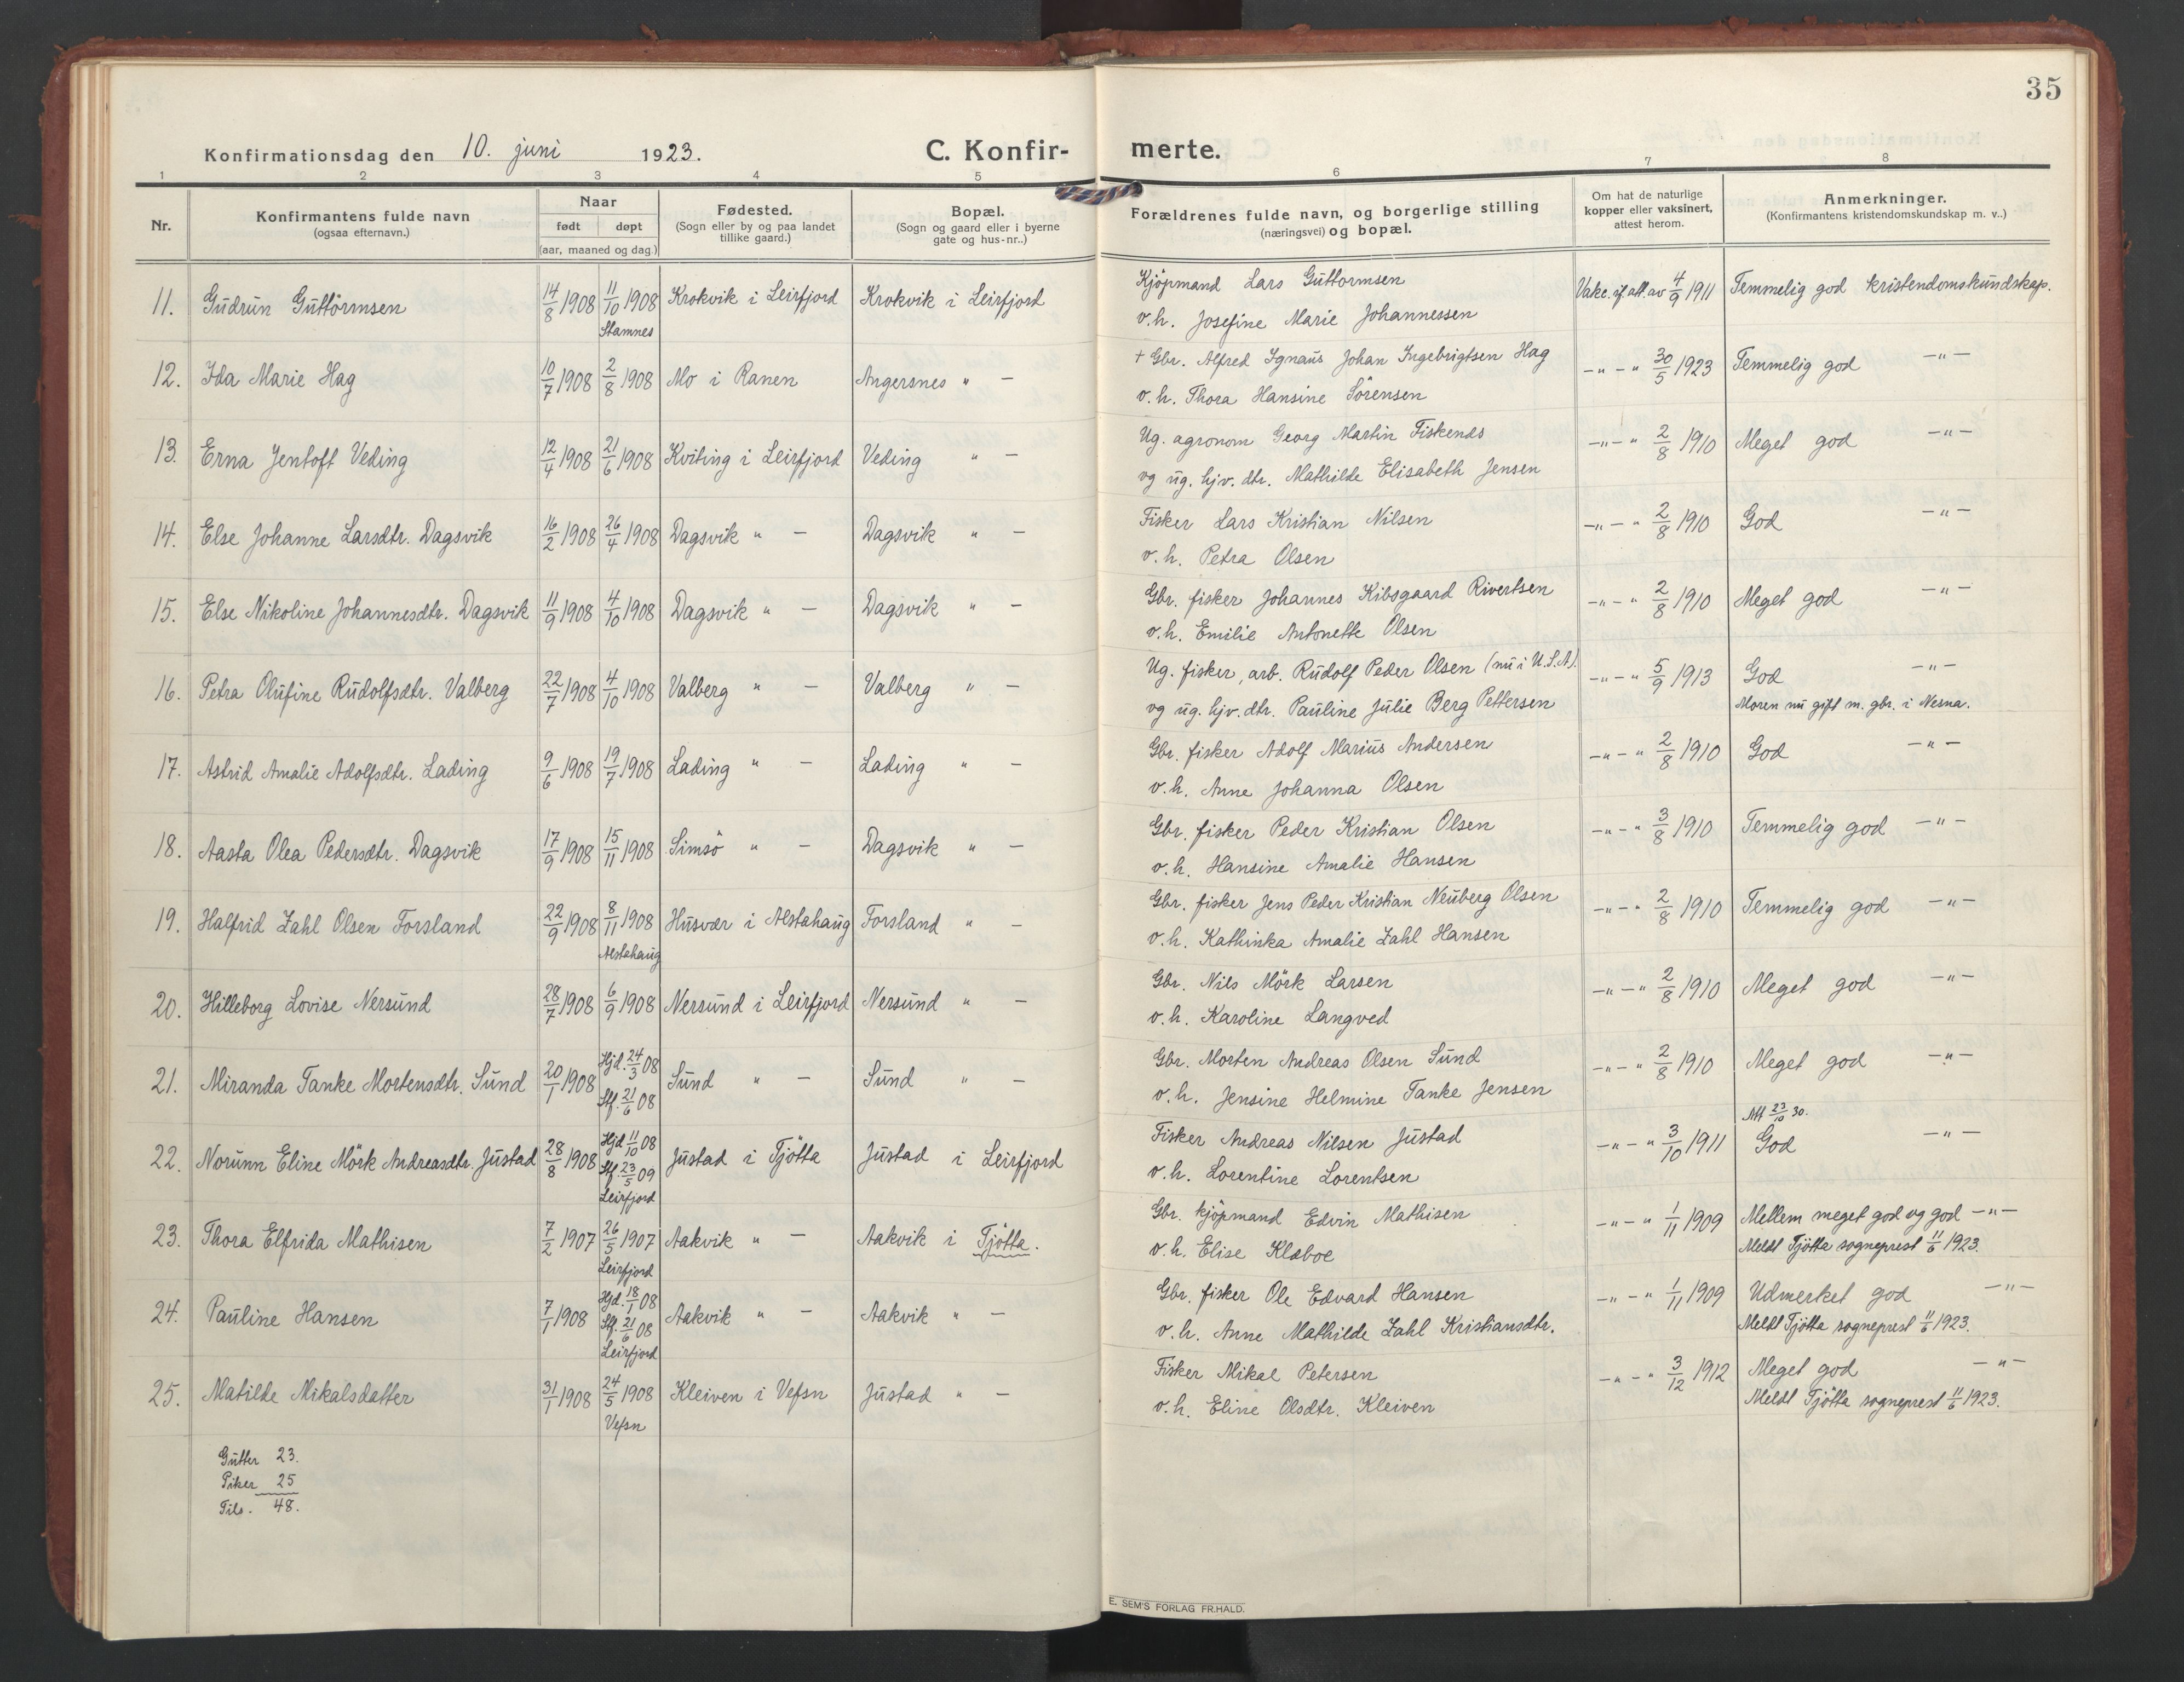 35
Konfirmationsdag den 10. juni 1923. C. Konfirmerte.
1 2 3 4 5 6 7 8
Nr. Konfirmantens fulde navn (ogsaa efternavn.) Naar født døpt (aar, maaned og dag.) Fødested. (Sogn eller by og paa landet tillike gaard.) Bopæl. (Sogn og gaard eller i byerne gate og hus-nr..) Forældrenes fulde navn, og borgerlige stilling (næringsvei) og bopæl. Om hat de naturlige kopper eller vaksinert, attest herom. Anmerkninger. (Konfirmantens kristendomskundskap m. v..)
11. Gudrun Guttormsen 14/8 1908 11/10 1908 Stamnes Krokvik i Leirfjord Krokvik i Leirfjord Kjöpmand Lars Guttormsen Vakc. if. att. av 4/9 1911 Temmelig god kristendomskundskap.
v. h. Josefine Marie Johannessen
12. Ida Marie Hag 10/7 1908 2/8 1908 Mo i Ranen Angersnes " — + Gbr. Alfred Ignaus Johan Ingebrigtsen Hag —"—" 30/5 1923 Temmelig god —"—
v. h. Thora Hansine Sörensen
13. Erna Jentoft Veding 12/4 1908 21/6 1908 Kviting i Leirfjord Veding " — Ug. agronom Georg Martin Fiskends —"—" 2/8 1910 Meget god —"—
og ug. hjv. dtr. Mathilde Elisabeth Jensen
14. Else Johanne Larsdtr. Dagsvik 16/2 1908 26/4 1908 Dagsvik " — Dagsvik " — Fisker Lars Kristian Nilsen —"—" 2/8 1910 God —"—
v. h. Petra Olsen
15. Else Nikoline Johannesdtr. Dagsvik 11/9 1908 4/10 1908 Dagsvik " — Dagsvik " — Gbr. fisker Johannes Kibsgaard Rivertsen —"—" 2/8 1910 Meget god —"—
v. h. Emilie Antonette Olsen
16. Petra Olufine Rudolfsdtr. Valberg 22/7 1908 4/10 1908 Valberg " — Valberg " — Ug. fisker, arb. Rudolf Peder Olsen (nu i U.S.A). —"—" 5/9 1913 God —"—
og ug. hjv. dtr. Pauline Julie Berg Pettersen Moren nu gift m. gbr. i Nesna.
17. Astrid Amalie Adolfsdtr. Lading 9/6 1908 19/7 1908 Lading " — Lading " — Gbr. fisker Adolf Marius Andersen —"—" 2/8 1910 God —"—
v. h. Anne Johanna Olsen
18. Aasta Olea Pedersdtr. Dagsvik 17/9 1908 15/11 1908 Simsö " — Dagsvik " — Gbr. fisker Peder Kristian Olsen —"—" 3/8 1910 Temmelig god —"—
v. h. Hansine Amalie Hansen
19. Halfrid Zahl Olsen Forsland 22/9 1908 8/11 1908 Alstahaug Husvær i Alstahaug Forsland " — Gbr. fisker Jens Peder Kristian Neuberg Olsen —"—" 2/8 1910 Temmelig god —"—
v. h. Kathinka Amalie Zahl Hansen
20. Hilleborg Lovise Nersund 28/7 1908 6/9 1908 Nersund i Leirfjord Nersund " — Gbr. Nils Mörk Larsen —"—" 2/8 1910 Meget god —"—
v. h. Karoline Langved
21. Miranda Tanke Mortensdtr. Sund 20/1 1908 Hjd. 24/3 08 Stf. 21/6 08 Sund " — Sund " — Gbr. Morten Andreas Olsen Sund —"—" 2/8 1910 Meget god —"—
v. h. Jensine Helmine Tanke Jensen
Att 23/10 30.
22. Norunn Eline Mörk Andreasdtr. Justad 28/8 1908 Hjd 11/10 08 Stf. 23/5 09 Leirfjord Justad i Tjötta Justad i Leirfjord Fisker Andreas Nilsen Justad —"—" 3/10 1911 God —"—
v. h. Lorentine Lorentsen
23. Thora Elfrida Mathisen 7/2 1907 26/5 1907 Leirfjord Aakvik " — Aakvik i Tjötta. Gbr. kjöpmand Edvin Mathisen —"—" 1/11 1909 Mellem meget god og god —"—
v. h. Elise Klæboe Meldt Tjötta sogneprest 11/6 1923.
24. Pauline Hansen 7/1 1908 Hjd. 18/1 08 Stf. 21/6 08 Leirfjord Aakvik " — Aakvik " — Gbr. fisker Ole Edvard Hansen —"—" 1/11 1909 Udmerket god —"—
v. h. Anne Mathilde Zahl Kristiansdtr. Meldt Tjötta sogneprest 11/6 1923.
25. Matilde Mikalsdatter 31/1 1908 24/5 1908 Vefsn Kleiven i Vefsn Justad " — Fisker Mikal Petersen —"—" 3/12 1912 Meget god —"—
v. h. Eline Olsdtr. Kleiven Meldt Tjötta sogneprest 11/6 1923.
Gutter 23.
Piker 25
Tils. 48.
E. SEM'S FORLAG FR.HALD.